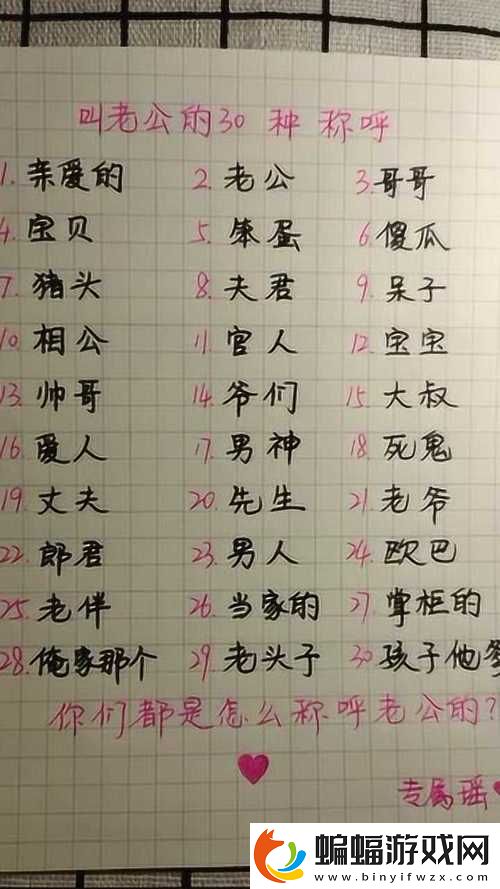 叫老公的30种称呼
1. 亲爱的 2. 老公 3. 哥哥
4. 宝贝 5. 笨蛋 6. 傻瓜
7. 猪头 8. 夫君 9. 呆子
10. 相公 11. 官人 12. 宝宝
13. 帅哥 14. 爷们 15. 大叔
16. 爱人 17. 男神 18. 死鬼
19. 丈夫 20. 先生 21. 老爷
22. 郎君 23. 男人 24. 欧巴
25. 老伴 26. 当家的 27. 掌柜的
28. 俺家那个 29. 老头子 30 孩子他
你们都是怎么称呼老公的?
专属瑶
蝙蝠游戏网
www.binyifwzx.com